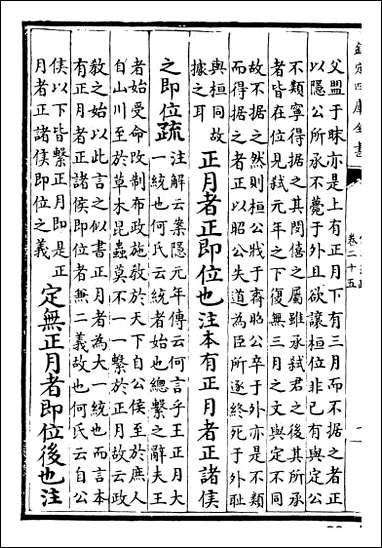 欽定四庫全書
卷二十五
父盟于昧亦是上有正月下有三月而不据之者正
以隱公所承不薨于外且欲讓桓位非已有與定公
不類寧得据之其閔僖之屬雖承弑君之後其所承
者皆在位見弑元年之下復無三月之文與定不同
故不据之然則桓公戕于齊昭公卒于外亦是不類
而得据之者正以昭公失道為臣所逐終死于外耻
與桓同故
據之耳
正月者正即位也注本有正月者正諸侯
之即位疏
注解云案隱元年傳云何言乎王正月大
一統也何氏云統者始也總繫之辭夫王
者始受命改制布政施教於天下自公侯至於庶人
自山川至於草木昆蟲莫不一一繫於正月故云政
教之始以此言之似書正月者為大一統也而言本
有正月者正諸侯即位者無二義故也何氏云自公
侯以下皆繫正月即是正
月者正諸侯即位之義
定無正月者即位後也注